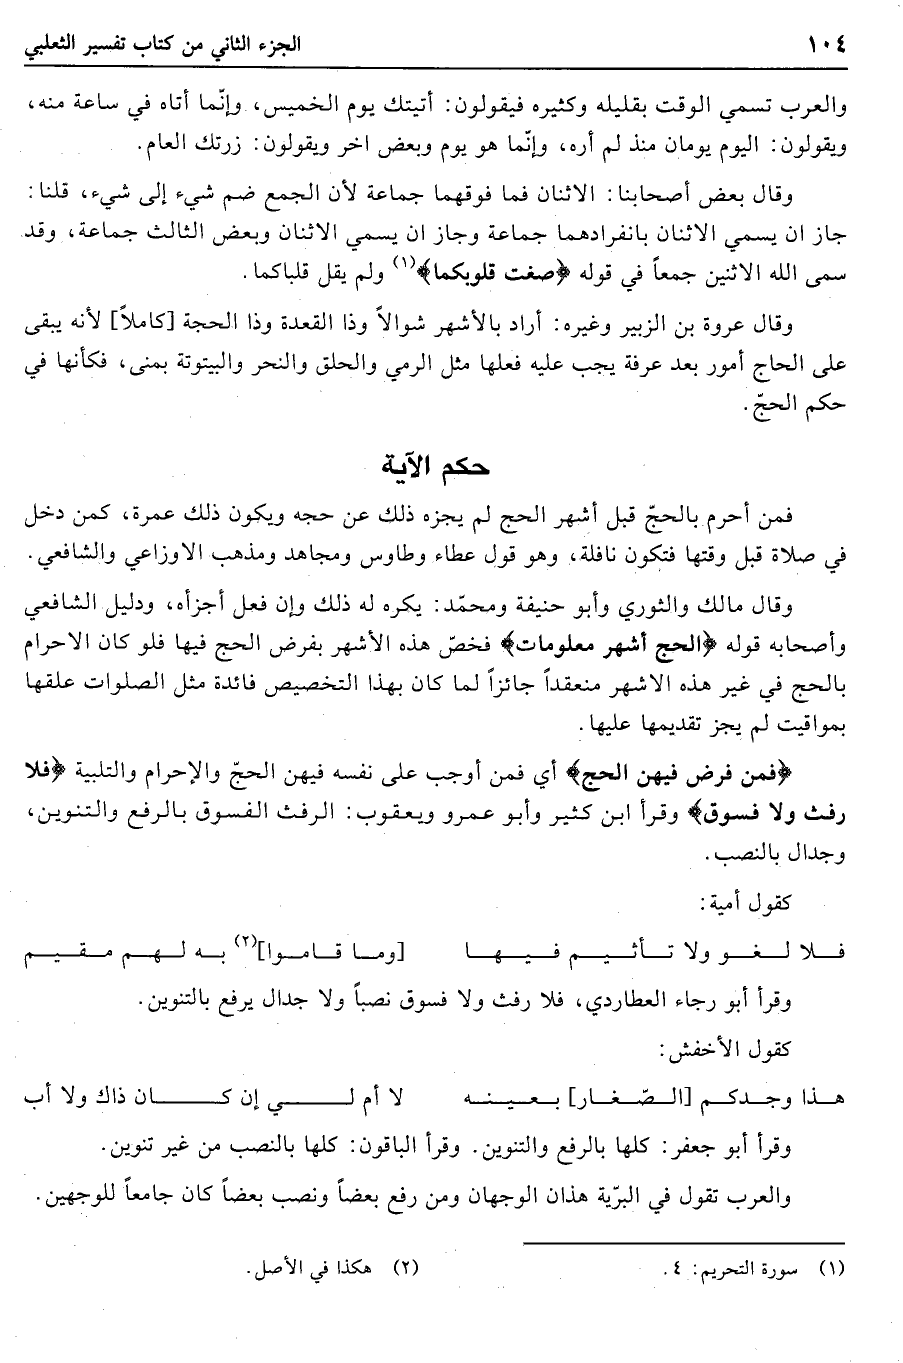 ١٠٤ الجزء الثاني من كتاب تفسير الثعلبي
والعرب تسمي الوقت بقليله وكثيره فيقولون: أتيتك يوم الخميس، وإنّما أتاه في ساعة منه،
ويقولون: اليوم يومان منذ لم أره، وإنّما هو يوم وبعض اخر ويقولون: زرتك العام.
وقال بعض أصحابنا: الاثنان فما فوقهما جماعة لأن الجمع ضم شيء إلى شيء، قلنا:
جاز ان يسمي الاثنان بانفرادهما جماعة وجاز ان يسمي الاثنان وبعض الثالث جماعة، وقد
سمى الله الاثنين جمعاً في قوله ﴿صغت قلوبكما﴾(١) ولم يقل قلباكما.
وقال عروة بن الزبير وغيره: أراد بالأشهر شوالاً وذا القعدة وذا الحجة [كاملاً] لأنه يبقى
على الحاج أمور بعد عرفة يجب عليه فعلها مثل الرمي والحلق والنحر والبيتوتة بمنى، فكأنها في
حكم الحجّ.
حكم الآية
فمن أحرم بالحجّ قبل أشهر الحج لم يجزه ذلك عن حجه ويكون ذلك عمرة، كمن دخل
في صلاة قبل وقتها فتكون نافلة، وهو قول عطاء وطاوس ومجاهد ومذهب الاوزاعي والشافعي.
وقال مالك والثوري وأبو حنيفة ومحمّد: يكره له ذلك وإن فعل أجزأه، ودليل الشافعي
وأصحابه قوله ﴿الحج أشهر معلومات﴾ فخصّ هذه الأشهر بفرض الحج فيها فلو كان الاحرام
بالحج في غير هذه الاشهر منعقداً جائزاً لما كان بهذا التخصيص فائدة مثل الصلوات علقها
بمواقيت لم يجز تقديمها عليها.
﴿فمن فرض فيهن الحج﴾ أي فمن أوجب على نفسه فيهن الحجّ والإحرام والتلبية ﴿فلا
رفث ولا فسوق﴾ وقرأ ابن كثير وأبو عمرو ويعقوب: الرفث الفسوق بالرفع والتنوين،
وجدال بالنصب.
كقول أمية:
فلا لغو ولا تأثيم فيها [وما قاموا](٢) به لهم مقيم
وقرأ أبو رجاء العطاردي، فلا رفث ولا فسوق نصباً ولا جدال يرفع بالتنوين.
كقول الأخفش:
هذا وجدكم [الصّغار] بعينه لا أم لي إن كان ذاك ولا أب
وقرأ أبو جعفر: كلها بالرفع والتنوين. وقرأ الباقون: كلها بالنصب من غير تنوين.
والعرب تقول في البرّية هذان الوجهان ومن رفع بعضاً ونصب بعضاً كان جامعاً للوجهين.
(١) سورة التحريم: ٤. (٢) هكذا في الأصل.